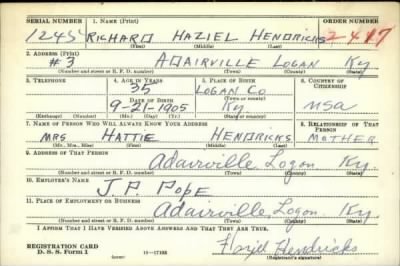 SERIAL NUMBER 1. NAME (Print) ORDER NUMBER
1245 RICHARD HAZIEL HENDRICKS 2417
(First) (Middle) (Last)
2. ADDRESS (Print)
#3 ADAIRVILLE LOGAN Ky
(Number and street or R. F. D. number) (Town) (County) (State)
3. TELEPHONE 4. AGE IN YEARS 5. PLACE OF BIRTH 6. COUNTRY OF CITIZENSHIP
35 LOGAN CO
DATE OF BIRTH (Town or county)
9-21-1905 Ky USA
(Exchange) (Number) (Mo.) (Day) (Yr.) (State or country)
7. NAME OF PERSON WHO WILL ALWAYS KNOW YOUR ADDRESS 8. RELATIONSHIP OF THAT PERSON
MRS HATTIE HENDRICKS MOTHER
(Mr., Mrs., Miss) (First) (Middle) (Last)
9. ADDRESS OF THAT PERSON
Adairville Logan Ky.
(Number and street or R. F. D. number) (Town) (County) (State)
10. EMPLOYER'S NAME
J. P. Pope
11. PLACE OF EMPLOYMENT OR BUSINESS
Adairville Logan Ky.
(Number and street or R. F. D. number) (Town) (County) (State)
I AFFIRM THAT I HAVE VERIFIED ABOVE ANSWERS AND THAT THEY ARE TRUE.
REGISTRATION CARD
D. S. S. Form 1 Hendricks
(Registrant's signature)